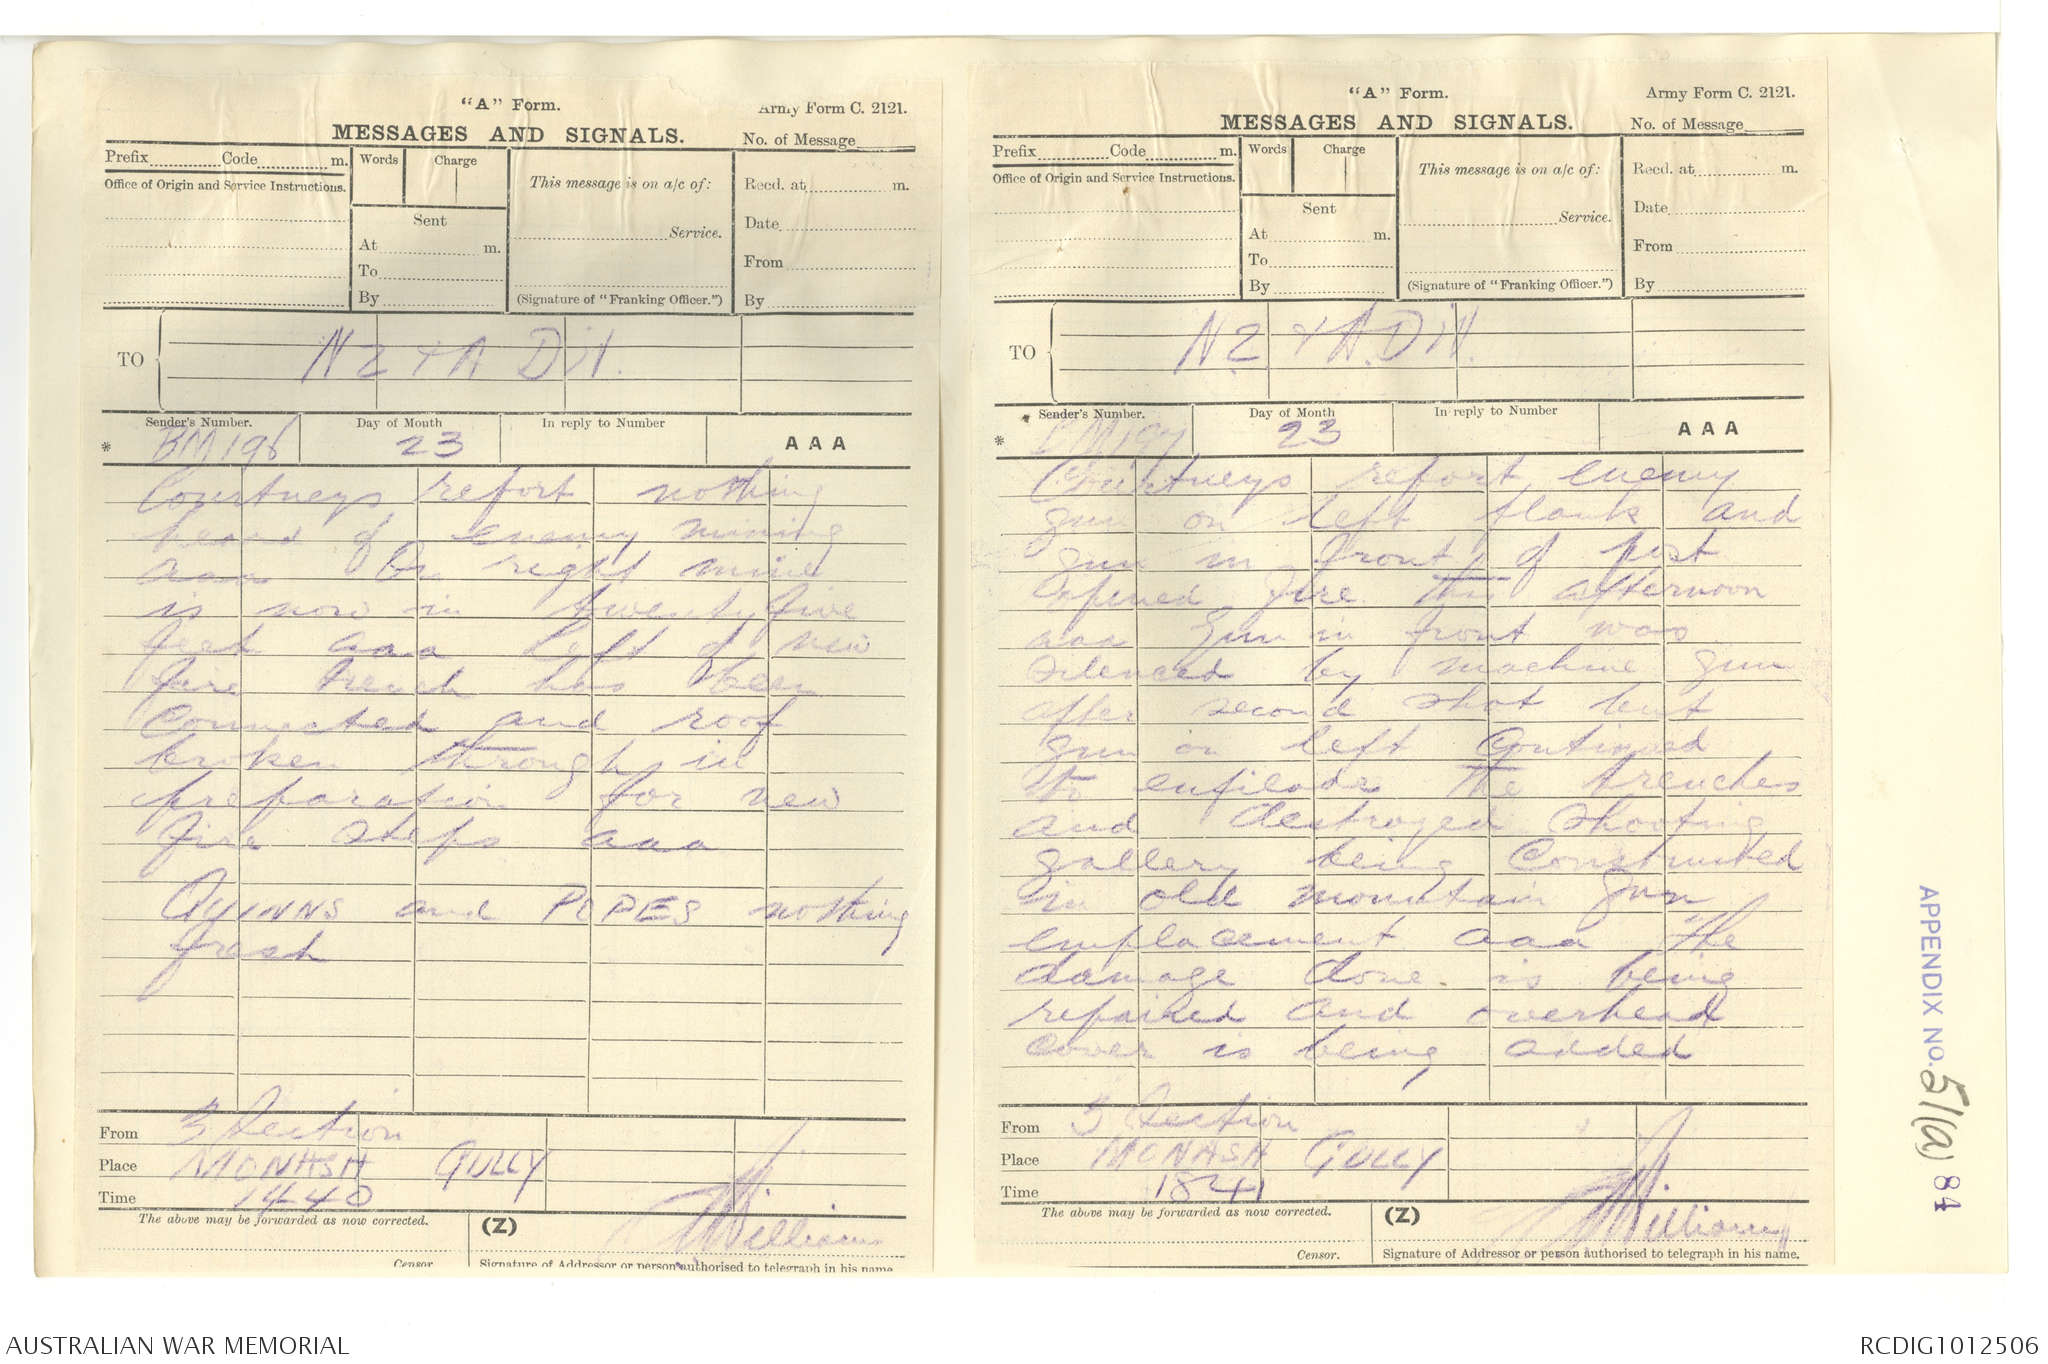 "A" Form.
Army Form C. 2121.
MESSAGES AND SIGNALS.
No. of Message
Prefix Code m.
Words Charge
This message is on a/c of:
Recd. at m.
Office of Origin and Service Instructions.
Sent
Service.
Date
At m.
From
To
By
(Signature of "Franking Officer.")
By
TO
NZ & A Div.
Sender's Number.
Day of Month
In reply to Number
* BM196
23
AAA
Courtneys report nothing
heard of enemy mining
aaa On right mine
is now in twenty five
feet aaa left of new
fire trench has been
connected and roof
broken through in
preparation for new
fire steps aaa
QUINNS and POPES nothing
fresh
From 3 Section
Place MONASH GULLY
Time 1440
The above may be forwarded as now corrected.
(Z)
Williams
Censor.
Signature of Addressor or person authorised to telegraph in his name
"A" Form.
Army Form C. 2121.
MESSAGES AND SIGNALS.
No. of Message
Prefix Code m.
Words Charge
This message is on a/c of:
Recd. at m.
Office of Origin and Service Instructions.
Sent
Service.
Date
At m.
From
To
By
(Signature of "Franking Officer.")
By
TO
NZ & A. Div.
Sender's Number.
Day of Month
In reply to Number
* BM197
23
AAA
Courtneys report enemy
gun on left flank and
gun in front of post
opened fire this afternoon
aaa Gun in front was
silenced by machine gun
after second shot but
gun on left continued
to enfilade the trenches
and destroyed shooting
gallery being constructed
in old mountain gun
emplacement aaa The
damage done is being
repaired and overhead
cover is being added
From 3 Section
Place MONASH GULLY
Time 1841
The above may be forwarded as now corrected.
(Z)
Williams
Censor.
Signature of Addressor or person authorised to telegraph in his name.
APPENDIX NO. 51(a) 84
AUSTRALIAN WAR MEMORIAL
RCDIG1012506